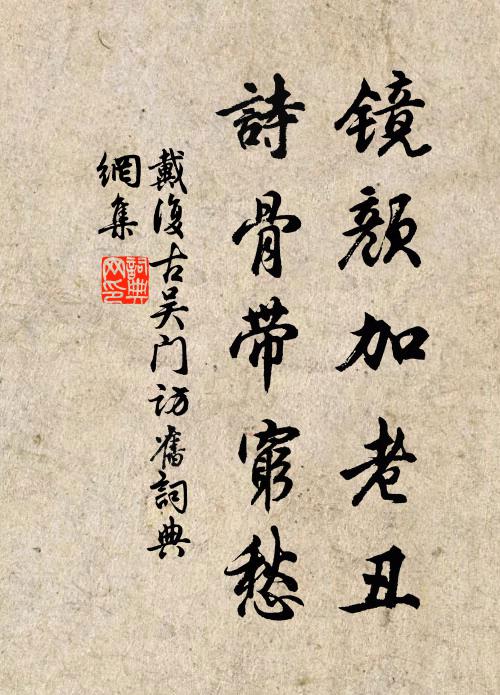 镜颜加老丑
詩骨帶窮愁
戴復古吴门访舊詞典
網集
詞典
网印